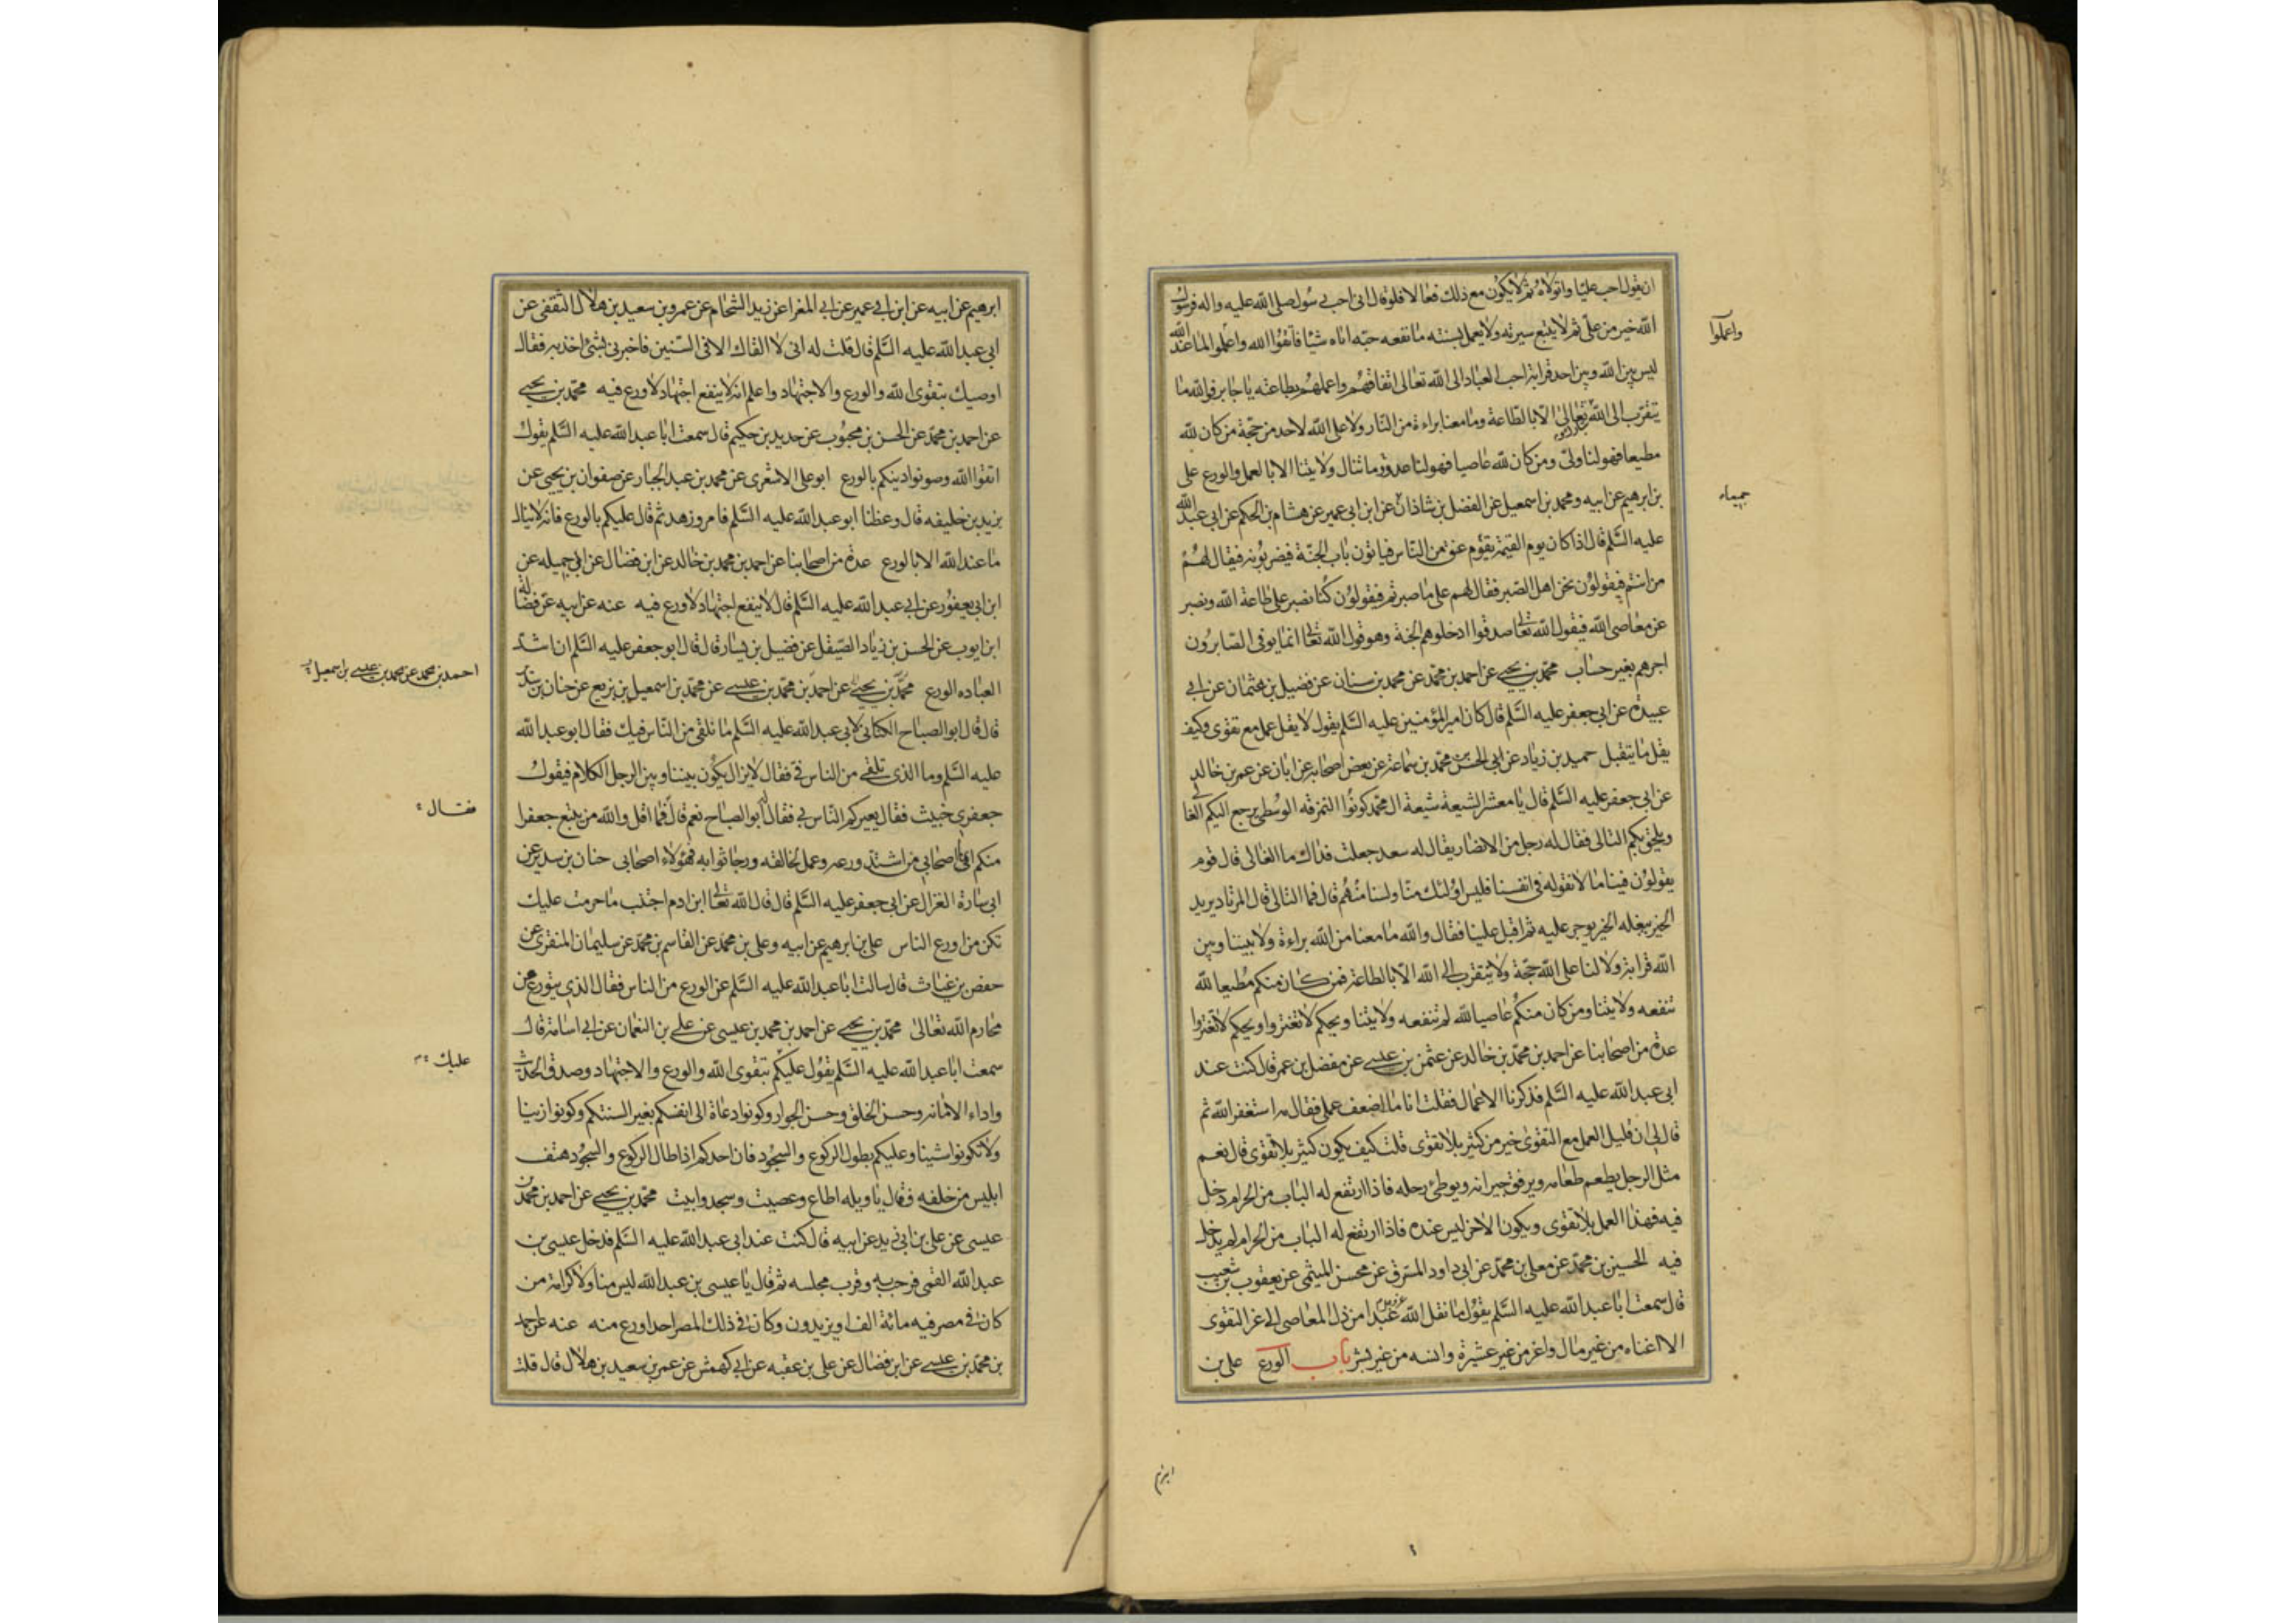 ان يقول احب عليا واتولاه ثم لا يكون مع ذلك فعالا فلو قال انى احب رسول صلى الله عليه واله فرسول
الله خير من على ثم لا يتبع سيرته ولا يعمل بسنته ما نفعه حبه اياه شيئا فاتقوا الله واعملوا لما عند الله
واعملوا
ليس بين الله وبين احد قرابة احب العباد الى الله تعالى اتقاهم واعملهم بطاعته يا جابر فوالله ما
يتقرب الى الله تعالى الا بالطاعة وما معنا براءة من النار ولا على الله لاحد من حجة من كان لله
مطيعا فهو لنا ولى ومن كان لله عاصيا فهو لنا عدو وما تنال ولايتنا الا بالعمل والورع على
بن ابرهيم عن ابيه ومحمد بن اسمعيل عن الفضل بن شاذان عن ابن ابى عمير عن هشام بن الحكم عن ابى عبد الله
جميعا
عليه السلم قال اذا كان يوم القيمة يقوم عنق من الناس فياتون باب الجنة فيضربونه فيقال لهم
من انتم فيقولون نحن اهل الصبر فقال لهم على ما صبرتم فيقولون كنا نصبر على طاعة الله ونصبر
عن معاصى الله فيقول الله تعالى صدقوا ادخلوهم الجنة وهو قول الله تعالى انما يوفى الصابرون
اجرهم بغير حساب محمد بن يحيى عن احمد بن محمد عن محمد بن سنان عن فضيل بن عثمان عن ابى
عبيدة عن ابى جعفر عليه السلم قال كان امير المؤمنين عليه السلم يقول لا يقل عمل مع تقوى وكيف
يقل ما يتقبل حميد بن زياد عن ابى الحسن محمد بن سماعة عن بعض اصحابه عن ابان عن عمر بن خالد
عن ابى جعفر عليه السلم قال يا معشر الشيعة شيعة ال محمد كونوا النمرقة الوسطى يرجع اليكم الغالى
ويلحق بكم التالى فقال له رجل من الانصار يقال له سعد جعلت فداك ما الغالى قال قوم
يقولون فينا ما لا نقوله فى انفسنا فليس اولئك منا ولسنا منهم قال فما التالى قال المرتاد يريد
الخير يبغله الخير يوجر عليه ثم اقبل علينا فقال والله ما معنا من الله براءة ولا بيننا وبين
الله قرابة ولا لنا على الله حجة ولا يتقرب الى الله الا بالطاعة فمن كان منكم مطيعا لله
تنفعه ولايتنا ومن كان منكم عاصيا لله لم تنفعه ولايتنا ويحكم لا تغتروا ويحكم لا تغتروا
عدة من اصحابنا عن احمد بن محمد بن خالد عن عثمن بن عيسى عن مفضل بن عمر قال كنت عند
ابى عبد الله عليه السلم فذكرنا الاعمال فقلت انا ما اضعف عملى فقال مه استغفر الله ثم
قال لى ان قليل العمل مع التقوى خير من كثير بلا تقوى قلت كيف يكون كثير بلا تقوى قال نعم
مثل الرجل يطعم طعامه ويرفق جيرانه ويوطئ رحله فاذا ارتفع له الباب من الحرام دخل
فيه فهذا العمل بلا تقوى ويكون الاخر ليس عنده فاذا ارتفع له الباب من الحرام لم يدخل
فيه الحسين بن محمد عن معلى بن محمد عن ابى داود المسترق عن محسن الميثمى عن يعقوب بن شعيب
قال سمعت ابا عبد الله عليه السلم يقول ما نقل الله عبدا من ذل المعاصى الى عز التقوى
الا اغناه من غير مال واعزه من غير عشيرة وانسه من غير بشر باب الورع على بن
ابرهم
ابرهيم عن ابيه عن ابن ابى عمير عن ابى المغرا عن زيد الشحام عن عمرو بن سعيد بن هلال الثقفى عن
ابى عبد الله عليه السلم قال قلت له انى لا القاك الا فى السنين فاخبرنى بشئ اخذ به فقال
اوصيك بتقوى الله والورع والاجتهاد واعلم انه لا ينفع اجتهاد لا ورع فيه محمد بن يحيى
عن احمد بن محمد عن الحسن بن محبوب عن حديد بن حكيم قال سمعت ابا عبد الله عليه السلم يقول
اتقوا الله وصونوا دينكم بالورع ابو على الاشعرى عن محمد بن عبد الجبار عن صفوان بن يحيى عن
يزيد بن خليفه قال وعظنا ابو عبد الله عليه السلم فامر وزهد ثم قال عليكم بالورع فانه لا ينال
ما عند الله الا بالورع عدة من اصحابنا عن احمد بن محمد بن خالد عن ابن فضال عن ابى جميله عن
ابن ابى يعفور عن ابى عبد الله عليه السلم قال لا ينفع اجتهاد لا ورع فيه عنه عن ابيه عن فضالة
ابن ايوب عن الحسن بن زياد الصيقل عن فضيل بن يسار قال قال ابو جعفر عليه السلم ان اشد
العباده الورع محمد بن يحيى عن احمد بن محمد بن عيسى عن محمد بن اسمعيل بن بزيع عن حنان بن سدير
احمد بن محمد عن محمد بن عيسى بن اسمعيل
قال قال ابو الصباح الكنانى لابى عبد الله عليه السلم ما نلقى من الناس فيك فقال ابو عبد الله
عليه السلم وما الذى تلقى من الناس فى فقال لا يزال يكون بيننا وبين الرجل الكلام فيقول
جعفرى خبيث فقال يعيركم الناس بى فقال له ابو الصباح نعم قال فما اقل والله من يتبع جعفرا
فقال
منكم انما اصحابى من اشتد ورعه وعمل لخالقه ورجا ثوابه فهؤلاء اصحابى حنان بن سدير عن
ابى سارة الغزال عن ابى جعفر عليه السلم قال قال الله تعالى ابن ادم اجتنب ما حرمت عليك
تكن من اورع الناس على بن ابرهيم عن ابيه وعلى بن محمد عن القاسم بن محمد عن سليمان المنقرى عن
حفص بن غياث قال سالت ابا عبد الله عليه السلم عن الورع من الناس فقال الذى يتورع عن
محارم الله تعالى محمد بن يحيى عن احمد بن محمد بن عيسى عن على بن النعمان عن ابى اسامة قال
سمعت ابا عبد الله عليه السلم يقول عليكم بتقوى الله والورع والاجتهاد وصدق الحديث
عليك
واداء الامانه وحسن الخلق وحسن الجوار وكونوا دعاة الى انفسكم بغير السنتكم وكونوا زينا
ولا تكونوا شينا وعليكم بطول الركوع والسجود فان احدكم اذا طال الركوع والسجود هتف
ابليس من خلفه فقال يا ويله اطاع وعصيت وسجد وابيت محمد بن يحيى عن احمد بن محمد بن
عيسى عن على بن ابى زيد عن ابيه قال كنت عند ابى عبد الله عليه السلم فدخل عيسى بن
عبد الله القمى فرحب به وقرب مجلسه ثم قال يا عيسى بن عبد الله ليس منا ولا كرامة من
كان فى مصر فيه مائة الف او يزيدون وكان فى ذلك المصر احد اورع منه عنه عن احمد
بن محمد بن عيسى عن ابن فضال عن على بن عقبه عن ابى كهمش عن عمر بن سعيد بن هلال قال قلت